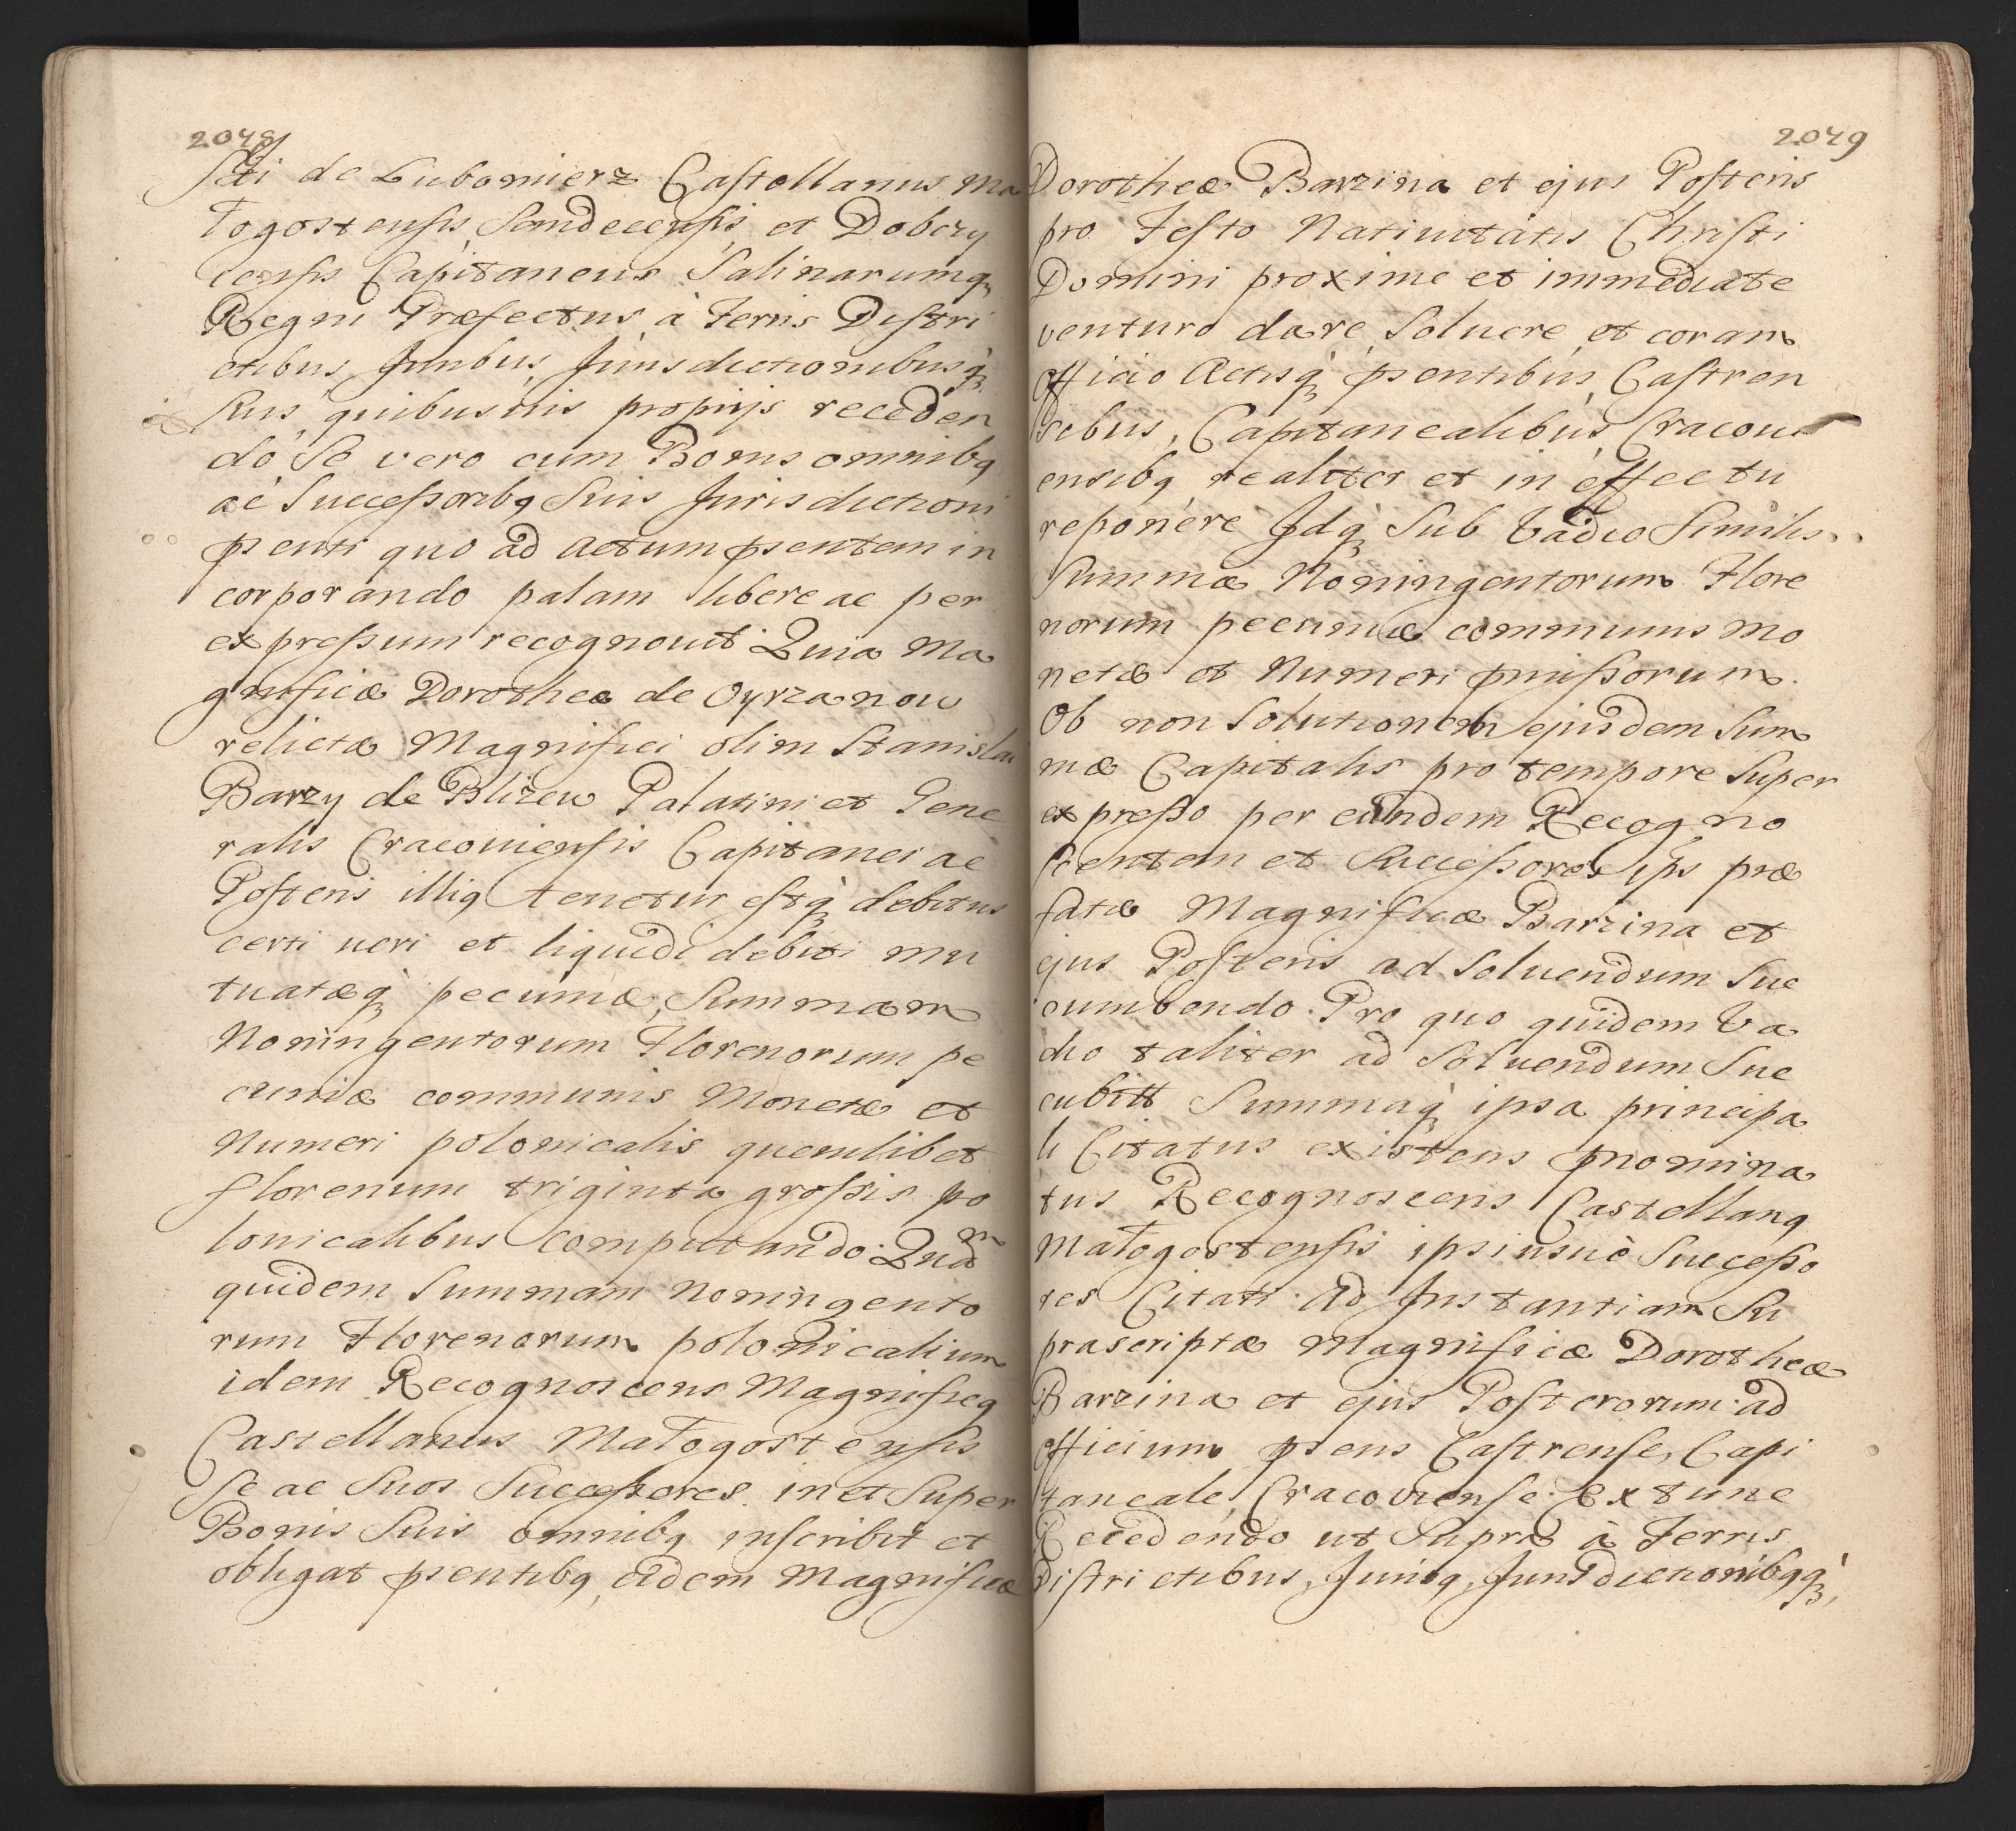 2048
ski de Lubomierz Castellanus Ma
łogostensis Sandecensis, et Dobczy
censis Capitaneus Salinarumq
Regni Præfectus à Terris Distri
ctibus Juribus Jurisdictionibusq
suis, quibusuis proprijs receden
do Se vero cum Bonis omnibq
ac Successoribq Suis Jurisdictioni
psenti quo ad Actum psentem in
corporando palam libere ac per
expressum recognouit Quia Ma
gnificæ Dorotheæ de Oyrzanow
relictæ Magnifici olim Stanislai
Barzy de Blizew Palatini et Gene
ralis Cracouiensis Capitanei ac
Posteris illiq tenetur estq debitus
certi ueri et liquidi debiti mu
tuatæq pecuniæ, Summam
Noningentorum Florenorum pe
cuniæ communis Monetæ et
Numeri polonicalis quemlibet
florenum triginta grossis po
lonicalibus computando. Quam
quidem Summam Noningento
rum Florenorum polonicalium
idem Recognoscens Magnificq
Castellanus Małogostensis
Se ac Suos Successores in et Super
Bonis Suis omnibq inscribit et
obligat psentibq, eidem Magnificæ
2049
Dorotheæ Barzina et ejus Posteris
pro Festo Natiuitatis Christi
Domini proxime et immediate
venturo dare, Soluere, et coram
Officio Actisq psentibus, Castren
sibus, Capitanealibus Cracoui
ensibq realiter et in effectu
reponere Idq Sub Vadio Similis
Summæ Noningentorum Flore
norum pecuniæ communis Mo
netæ et Numeri pmissorum.
Ob non Solutionem ejusdem Sum
mæ Capitalis pro tempore Super
expresso per eundem Recogno
scentem et Successores ips præ
fatæ Magnificæ Barzina et
ejus Posteris ad Soluendum Suc
cumbendo. Pro quo quidem Va
dio taliter ad Soluendum Suc
cubitt Summaq ipsa principa
li Citatus existens pnomina
tus Recognoscens Castellanq
Małogostensis ipsiusuè Successo
res Citati. Ad Instantiam Su
prascriptæ Magnificæ Dorotheæ
Barzina et ejus Posterorum ad
Officium psens Castrense, Capi
taneale, Cracouiense. Ex tunc
Recedendo ut Supra à Terris
Districtibus, Juribq, Jurisdictionibqq,